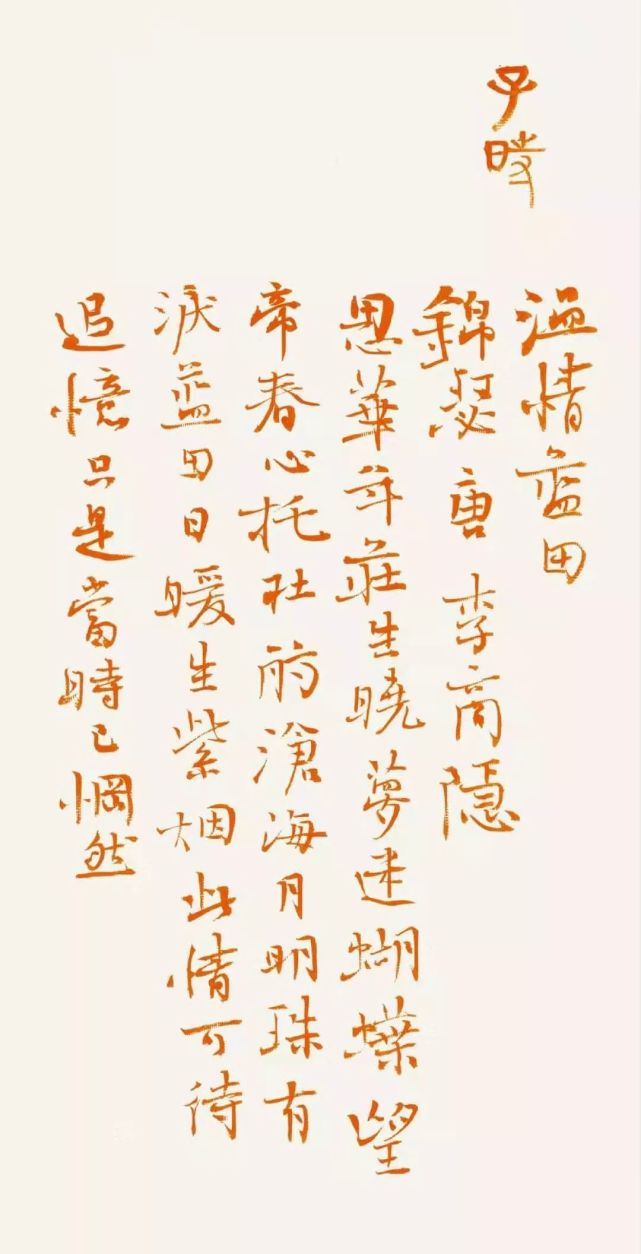 子時
温情蓝田
錦瑟 唐 李商隱
思華年莊生曉夢迷蝴蝶望
帝春心托杜鹃滄海月明珠有
淚蓝田日暖生紫烟此情可待
追憶只是當時已惘然